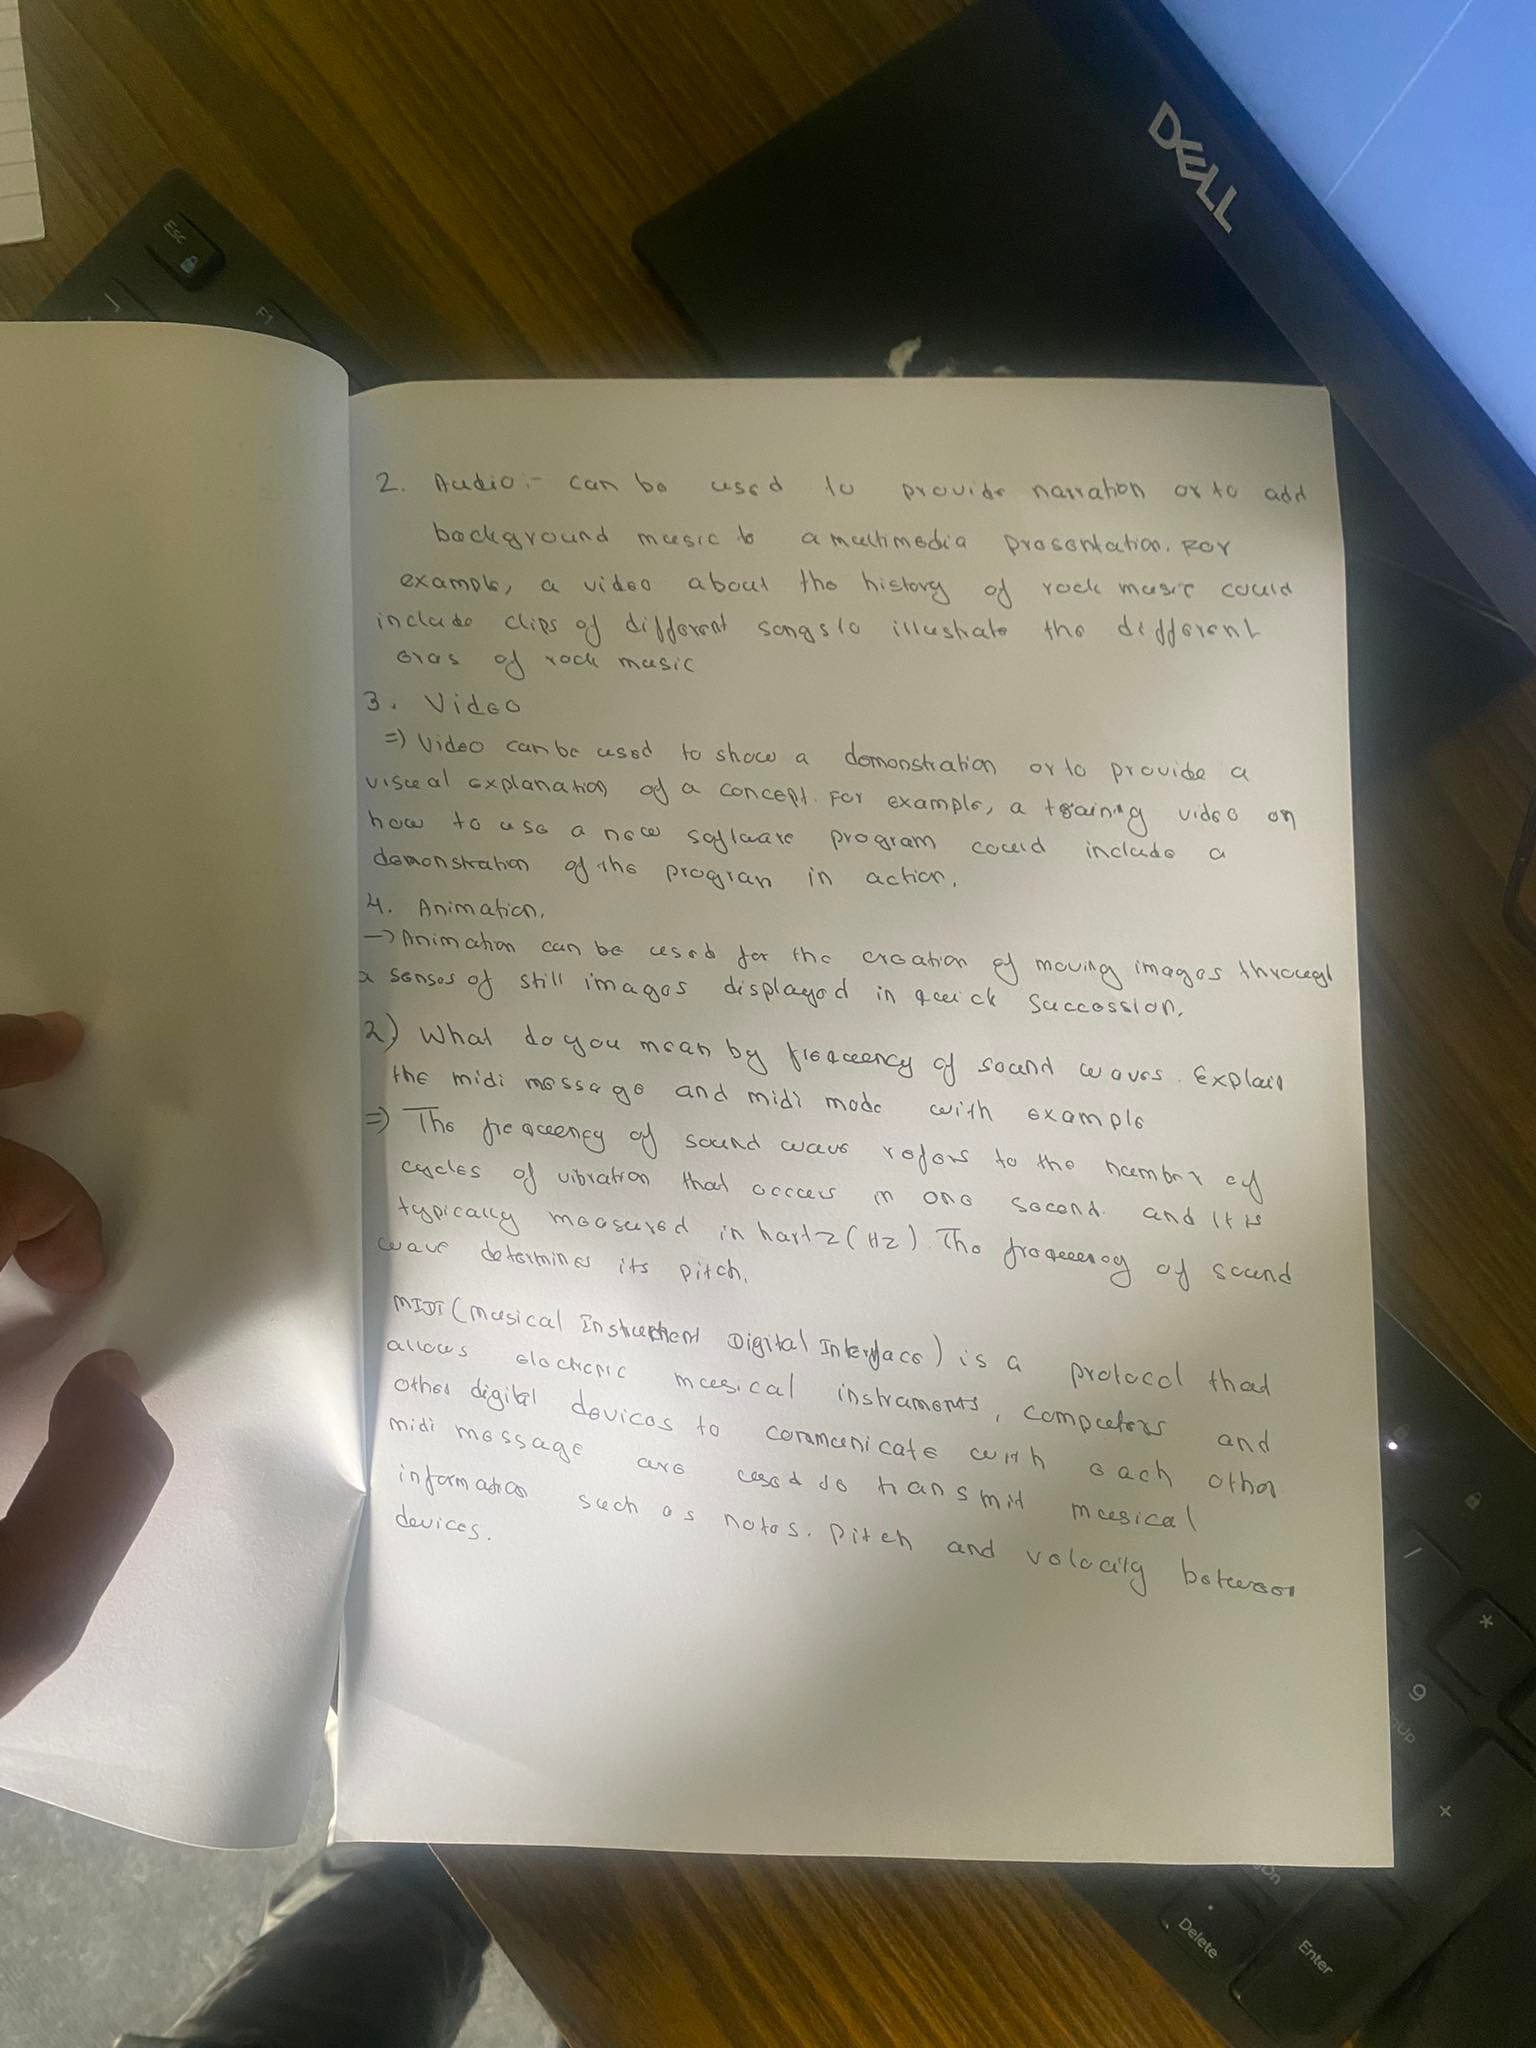 DELL
Esc
F1
2. Audio:- can be used to provide narration or to add
background music to a multimedia presentation. For
example, a video about the history of rock music could
include clips of different songs to illustrate the different
eras of rock music
3. Video
=) Video can be used to show a demonstration or to provide a
visual explanation of a concept. For example, a training video on
how to use a new software program could include a
demonstration of the program in action.
4. Animation.
-> Animation can be used for the creation of moving images through
a senses of still images displayed in quick succession.
2) What do you mean by frequency of sound waves. Explain
the midi message and midi mode with example
=) The frequency of sound wave refers to the number of
cycles of vibration that occurs in one second. and it is
typically measured in hartz (Hz) The frequency of sound
wave determines its pitch.
MIDI (Musical Instrument Digital Interface) is a protocol that
allows electronic musical instruments, computers and
other digital devices to communicate with each other
midi message are used to transmit musical
information such as notes. pitch and velocity between
devices.
/
*
9
+
Delete
Enter